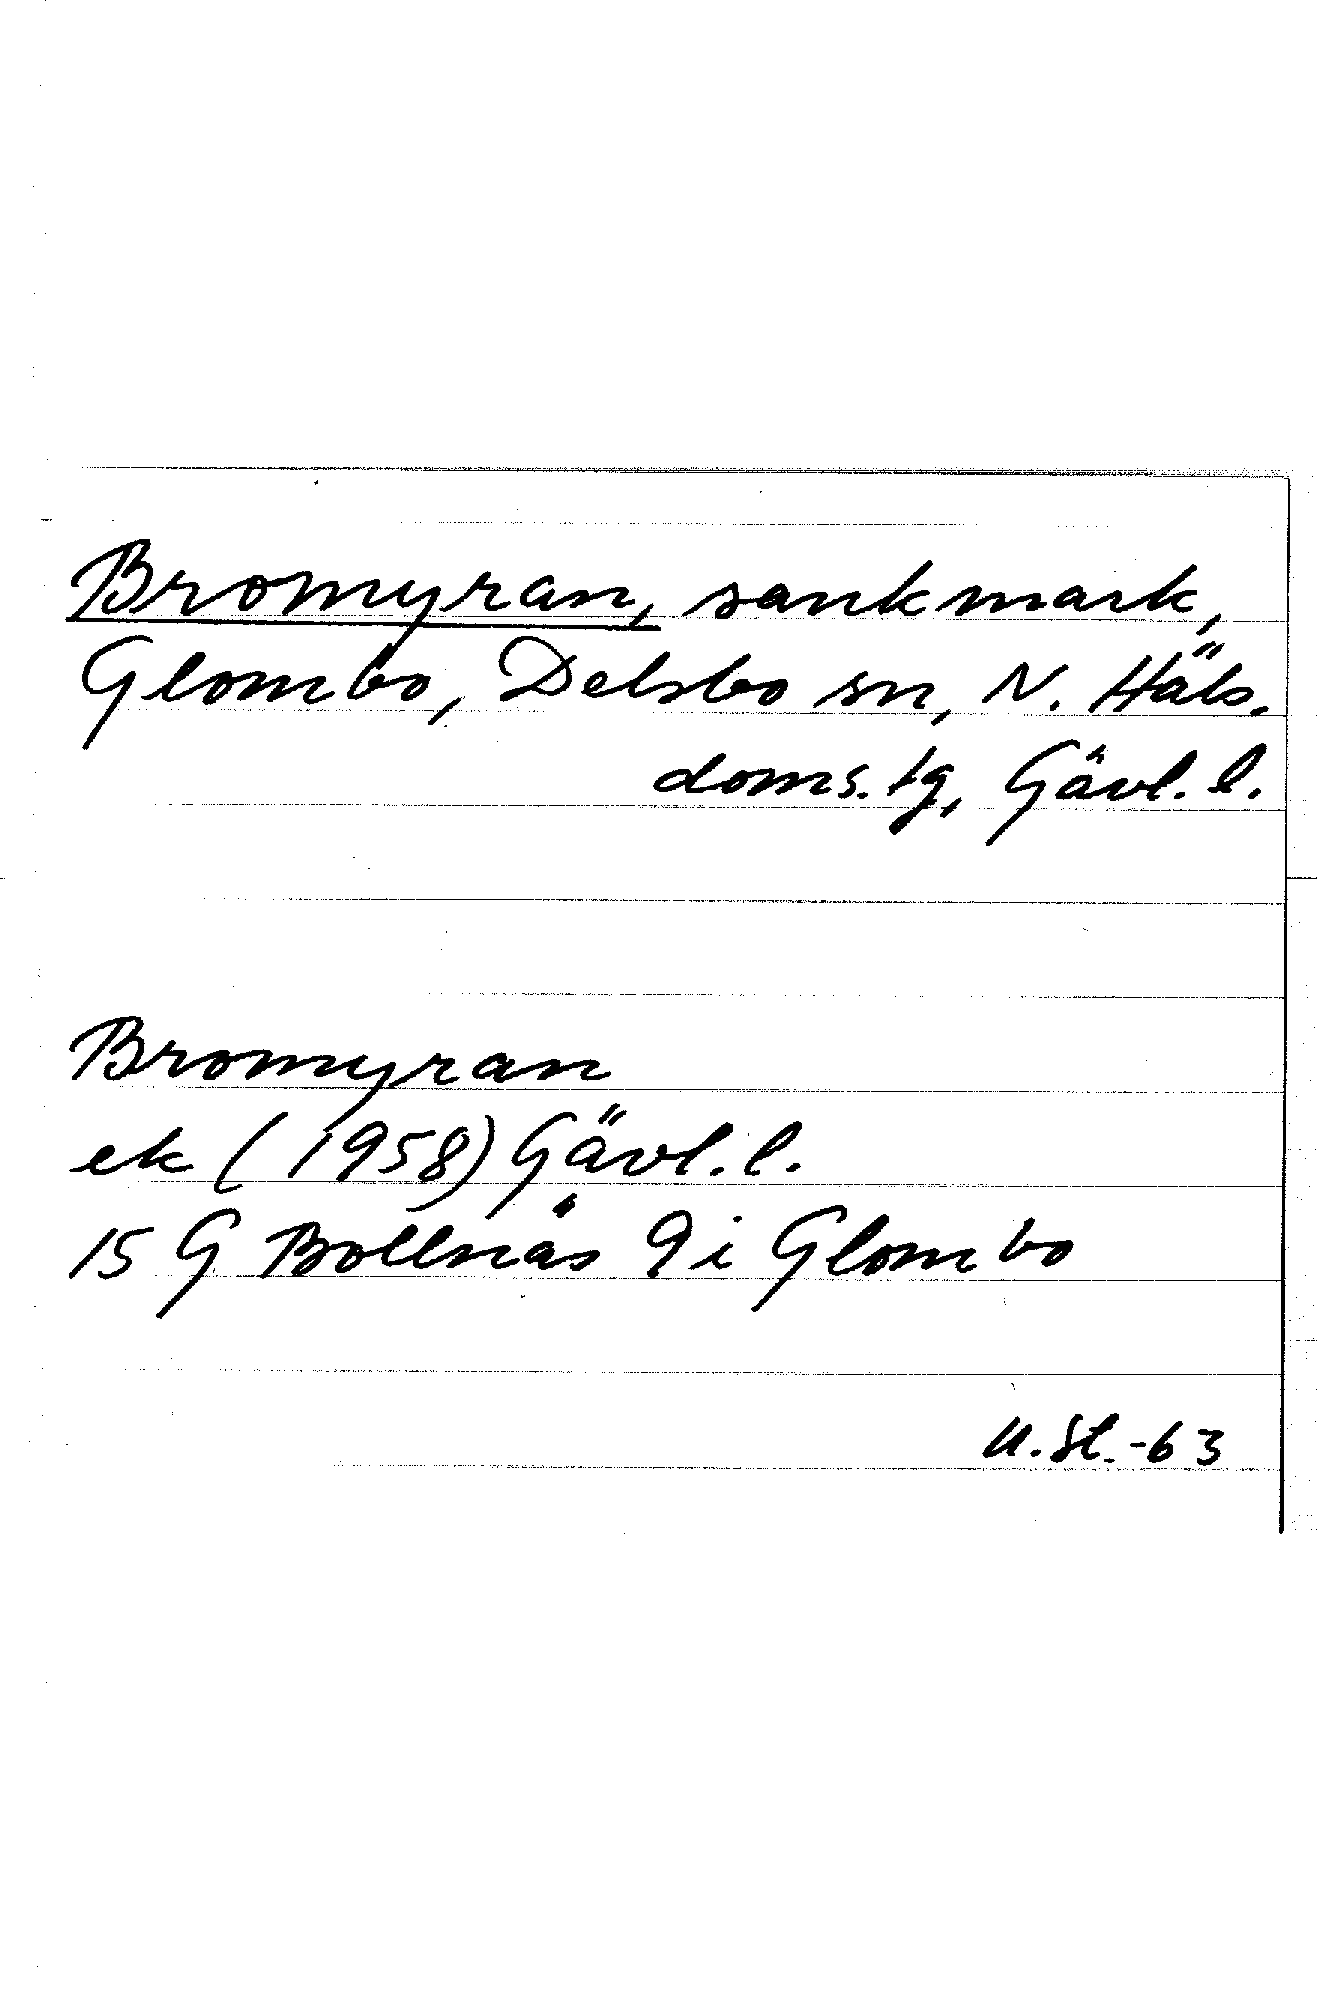 Bromyran, sankmark,
Glombo, Delsbo sn, N. Häls.
doms. tg, Gävl. l.
Bromyran
ek (1958) Gävl. l.
15 G Bollnäs 9 i Glombo
U. St. -63